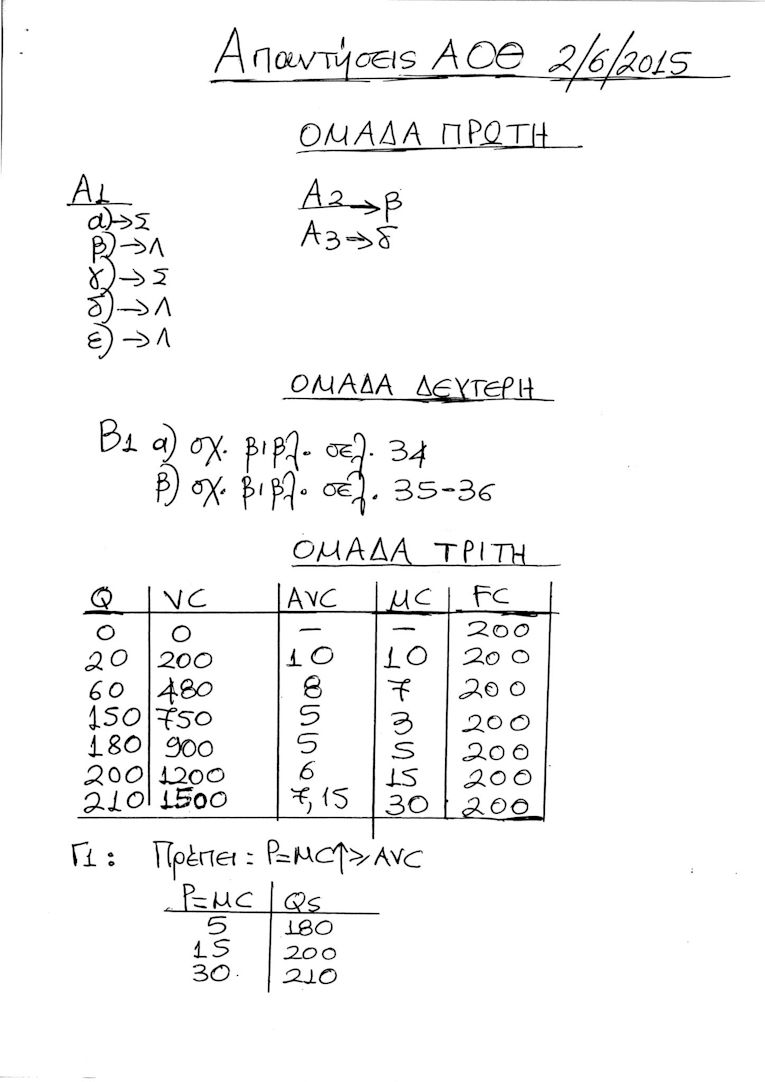 Απαντήσεις ΑΟΘ 2/6/2015
ΟΜΑΔΑ ΠΡΩΤΗ
Α1
α)→Σ
β)→Λ
γ)→Σ
δ)→Λ
ε)→Λ
Α2→β
Α3→δ
ΟΜΑΔΑ ΔΕΥΤΕΡΗ
Β1 α) σχ. βιβλ. σελ. 34
β) σχ. βιβλ. σελ. 35-36
ΟΜΑΔΑ ΤΡΙΤΗ
Q VC AVC MC FC
0 0 – – 200
20 200 10 10 200
60 480 8 7 200
150 750 5 3 200
180 900 5 5 200
200 1200 6 15 200
210 1500 7,15 30 200
Γ1: Πρέπει: P=MC↑≥AVC
P=MC Qs
5 180
15 200
30 210